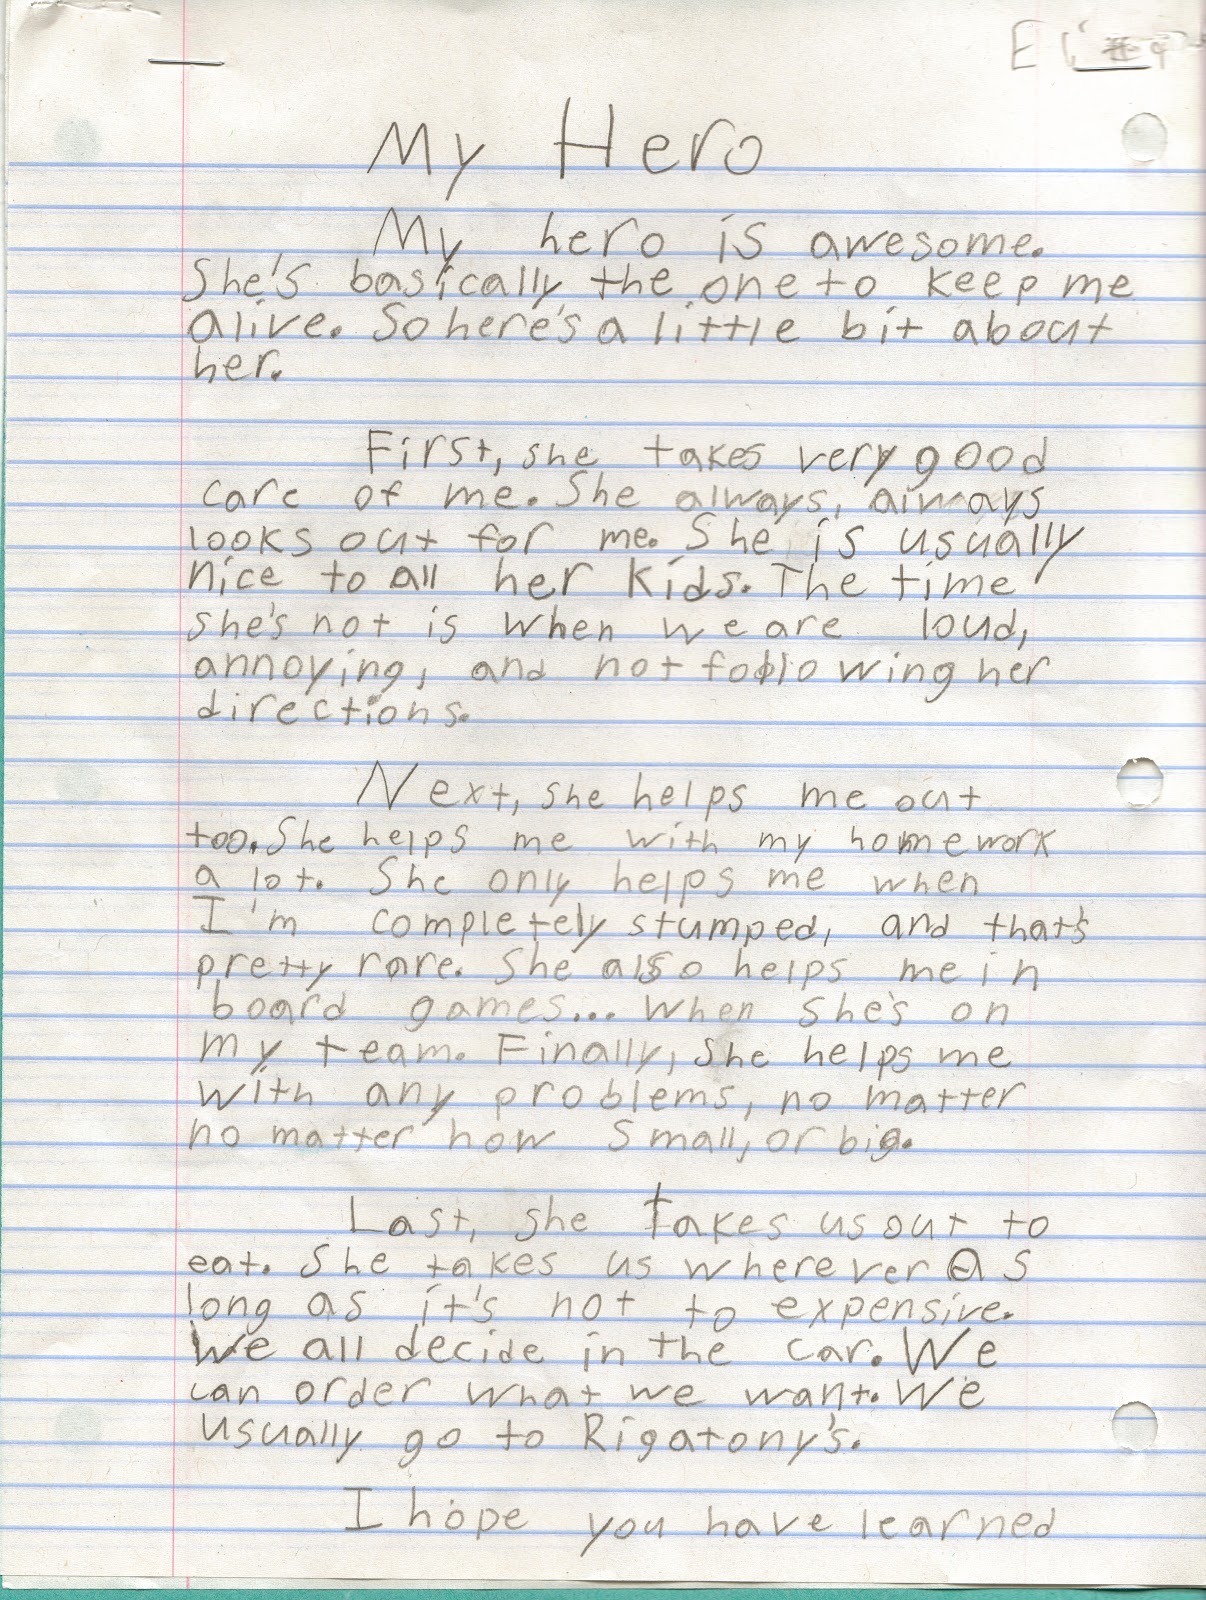 My Hero
My hero is awesome.
She's basically the one to keep me
alive. So here's a little bit about
her.
First, she takes very good
care of me. She always, always
looks out for me. She is usually
nice to all her kids. The time
she's not is when we are loud,
annoying, and not following her
directions.
Next, she helps me out
too. She helps me with my homework
a lot. She only helps me when
I'm completely stumped, and that's
pretty rare. She also helps me in
board games... when she's on
my team. Finally, she helps me
with any problems, no matter
no matter how small, or big.
Last, she takes us out to
eat. She takes us wherever as
long as it's not to expensive.
We all decide in the car. We
can order what we want. We
usually go to Rigatony's.
I hope you have learned